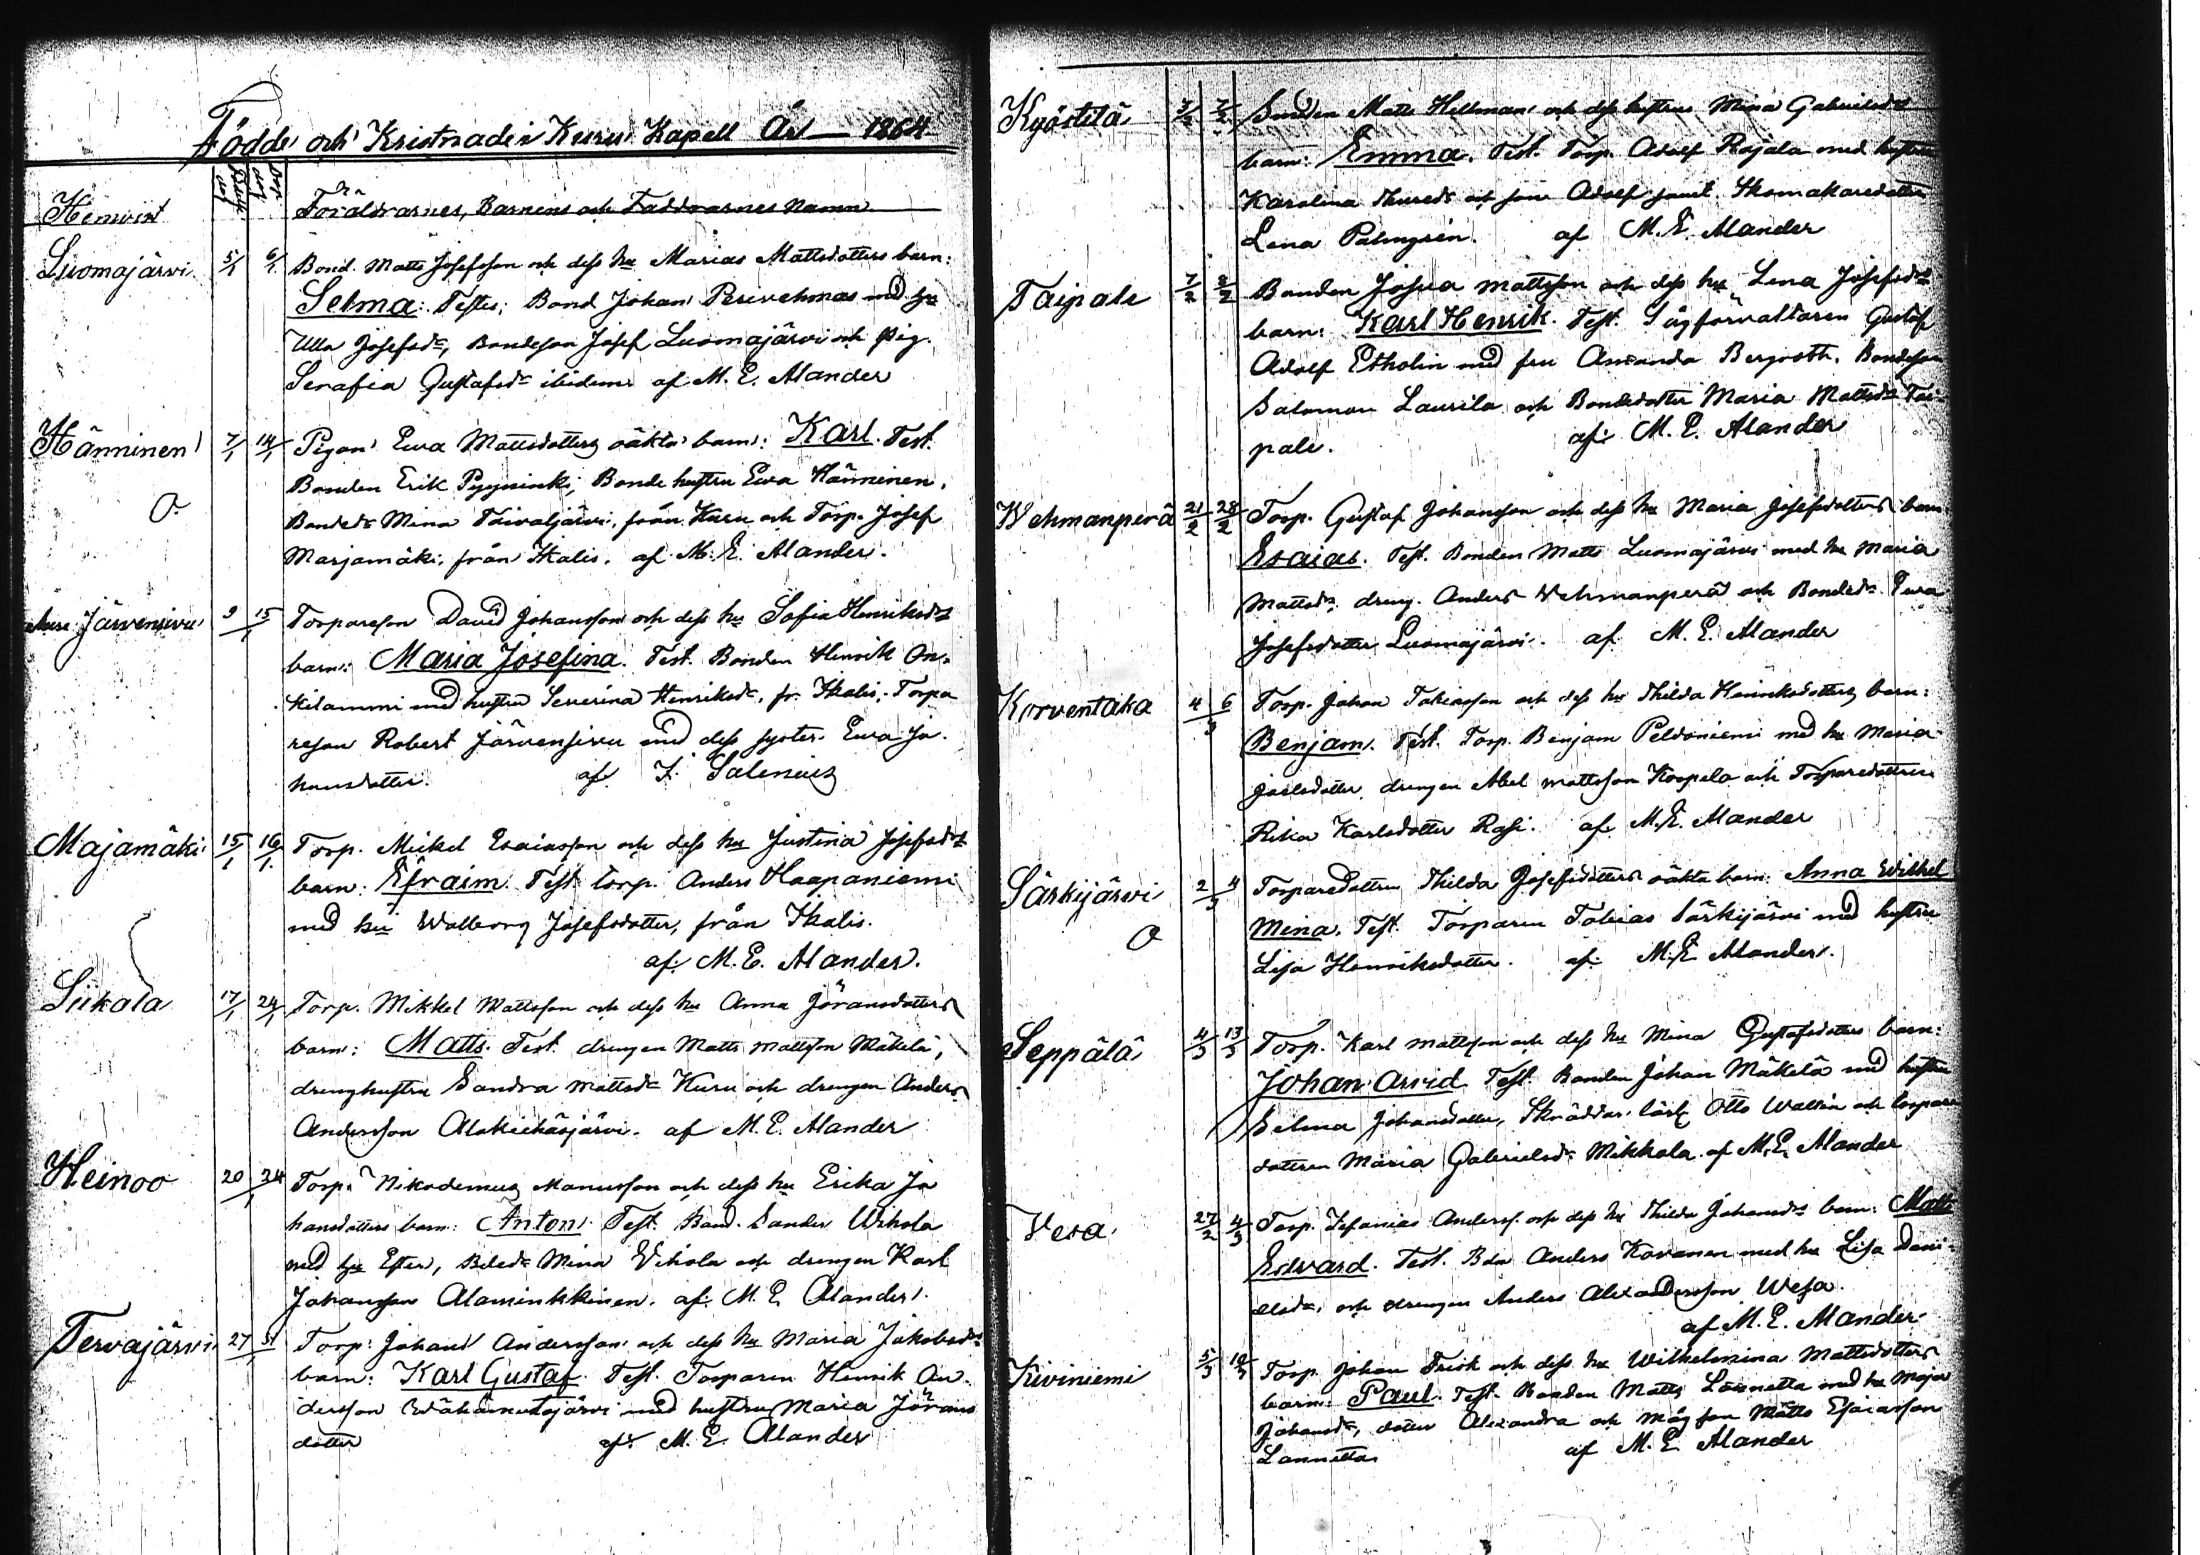 Födde och Kristnade i Kuru Kapell År 1864
Hemvist Föräldrarnes, Barnens och Faddrarnes Namn
Luomajärvi 5/1 6/1 Bond. Matts Josefsson och dess hu Marias Mattsdotters barn:
Selma. Testes: Bond Johan Perevehmas med hu
Ulla Josefsdr, Bondeson Josef Luomajärvi och pig.
Serafia Gustafsdr ibidem af M. E. Alander
Hänninen 7/1 14/1 Pigan Ewa Mattsdotters oäkta barn: Karl. Test.
Bonden Erik Pyyninki, Bondehustru Ewa Hänninen,
Bondedr Mina Taivaljärvi, från Kuru och Torp. Josef
Marjamäki, från Ikalis. af M. E. Alander.
Järvensivu 9 15/1 Torpareson David Johansson och dess hu Sofia Henriksdrs
barn: Maria Josefina. Test. Bonden Henrik On-
kilammi med hustru Severina Henriksdr, fr. Ikalis, Torpa
reson Robert Järvensivu med dess syster Ewa Jo-
hansdotter. af F. Salenius
Majamäki 15/1 16/1 Torp. Mickel Esaiasson och dess hu Justina Josefsdrs
barn: Efraim. Test. torp. Anders Haapaniemi
med hu Walborg Josefsdotter, från Ikalis.
af M. E. Alander.
Siikala 17/1 24/1 Torp. Mikkel Mattsson och dess hu Anna Göransdotters
barn: Matts. Test. drengen Matts Mattsson Mäkelä,
drenghustru Sandra Mattsdr Kuru och drengen Anders
Andersson af M. E. Alander
Heinoo 20 24/1 Torp. Nikodemus Manusson och dess hu Erika Jo
hansdotters barn: Anton. Test. Bond. Sander Wihola
med hu Ester, Mina Wihola och drengen Karl
Johansson Alaminkkinen. af M. E. Alander.
Tervajärvi 27 31/1 Torp. Johan Andersson och dess hu Maria Jakobsdrs
barn: Karl Gustaf. Test. Torparen Henrik An-
dersson med hustru Maria Jörans
dotter af M. E. Alander
Kyöstilä 3/2 7/2 Smeden Matts Hellman och dess hustru Mina Gabrielsdrs
barn: Emma. Test. Torp. Adolf Rajala med hustru
Karolina Thuredr och son Adolf samt Skomakaredotter
Lena Palmgrén. af M. E. Alander
Taipale 7/2 8/2 Bonden Josua Mattsson och dess hu Lena Josefsdrs
barn: Karl Henrik. Test. Sågförvaltaren Gustaf
Adolf Etholin med fru Amanda Bergroth, Bondeson
Salomon Laurila och Bondedotter Maria Mattsdr Tai-
pale. af M. E. Alander
Wehmanperä 21/2 28/2 Torp. Gustaf Johansson och dess hu Maria Josefsdotters barn
Esaias. Test. Bonden Matts Luomajärvi med hu Maria
Mattsdr, dreng. Anders Wehmanperä och Bondedr Ewa
Josefsdotter Luomajärvi. af M. E. Alander
Korventaka 4 6/3 Torp. Johan Tobiasson och dess hu Thilda Henriksdotters barn:
Benjam. Test. Torp. Benjam Peldoniemi med hu Maria
Joelsdotter, drengen Abel Mattsson Koopela och Torparedottren
Rika Karlsdotter Rasi. af M. E. Alander
Särkijärvi 2 4/3 Torparedottren Thilda Josefsdotters oäkta barn: Anna Wilhel
mina. Test. Torparen Tobias Särkijärvi med hustru
Lisa Henriksdotter. af M. E. Alander.
Seppälä 4/3 13/3 Torp. Karl Mattsson och dess hu Mina Gustafsdotters barn:
Johan Arvid. Test. Bonden Johan Mäkelä med hustru
Selma Johansdotter, Skräddar lärl. Otto Wallin och torpare
dottren Maria Gabrielsdr Mikkola. af M. E. Alander
Vesa 27/2 4/3 Torp. Sefanias Anderss. och dess hu Thilda Johansdrs barn: Matts
Edvard. Test. Bdn Anders Kovanen med hu Lisa Dani-
elsdr, och drengen Anders Alexandersson Wesa.
af M. E. Alander.
Kiviniemi 5/3 Torp. Johan Frisk och dess hu Wilhelmina Mattsdotters
barn: Paul. Test. Bonden Matts Lannetta med hu Maja
Johansdr, dotter Alexandra och måg son Matts Esaiasson
Lannetta af M. E. Alander